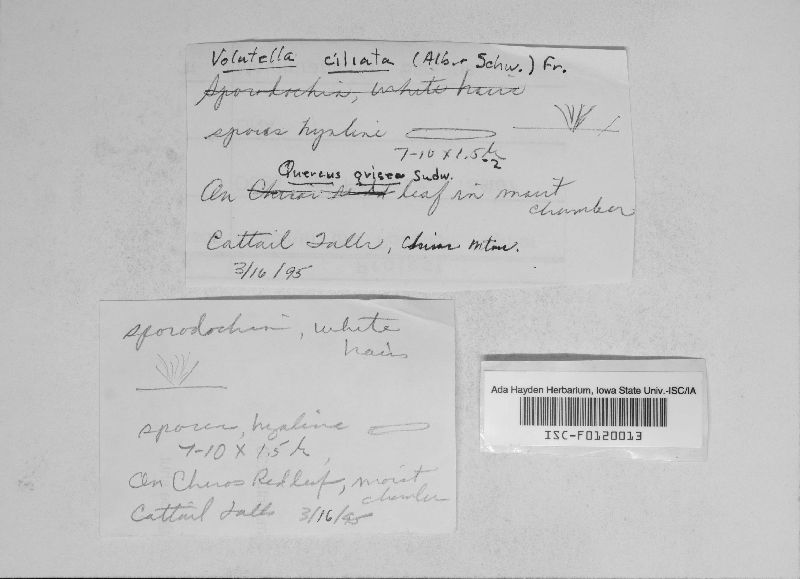 Volutella ciliata (Alb. & Schw.) Fr.
Sporodochia, white hairs
spores hyaline
7-10 x 1.5 µ
-2
Quercus grisea Sudw.
On Chisos Red leaf in moist
chamber
Cattail Falls, Chisos Mtns.
3/16/95
sporodochia, white
hairs
spores, hyaline
7-10 x 1.5 µ,
On Chisos Red leaf, moist
chamber
Cattail Falls 3/16/95
Ada Hayden Herbarium, Iowa State Univ.-ISC/IA
ISC-F0120013